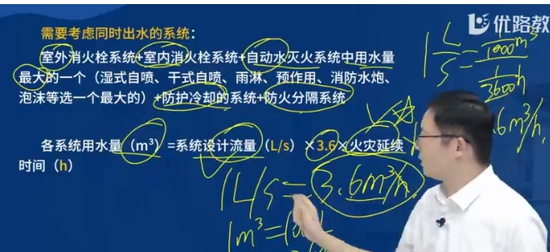 优路教
需要考虑同时出水的系统：
室外消火栓系统+室内消火栓系统+自动水灭火系统中用水量
最大的一个（湿式自喷、干式自喷、雨淋、预作用、消防水炮、
泡沫等选一个最大的）+防护冷却的系统+防火分隔系统
1 L/s = 1/1000 m³ / 1/3600 h
3.6 m³/h
各系统用水量（m³）=系统设计流量（L/s）×3.6×火灾延续
时间（h）
1L/s = 3.6m³/h
1m³=